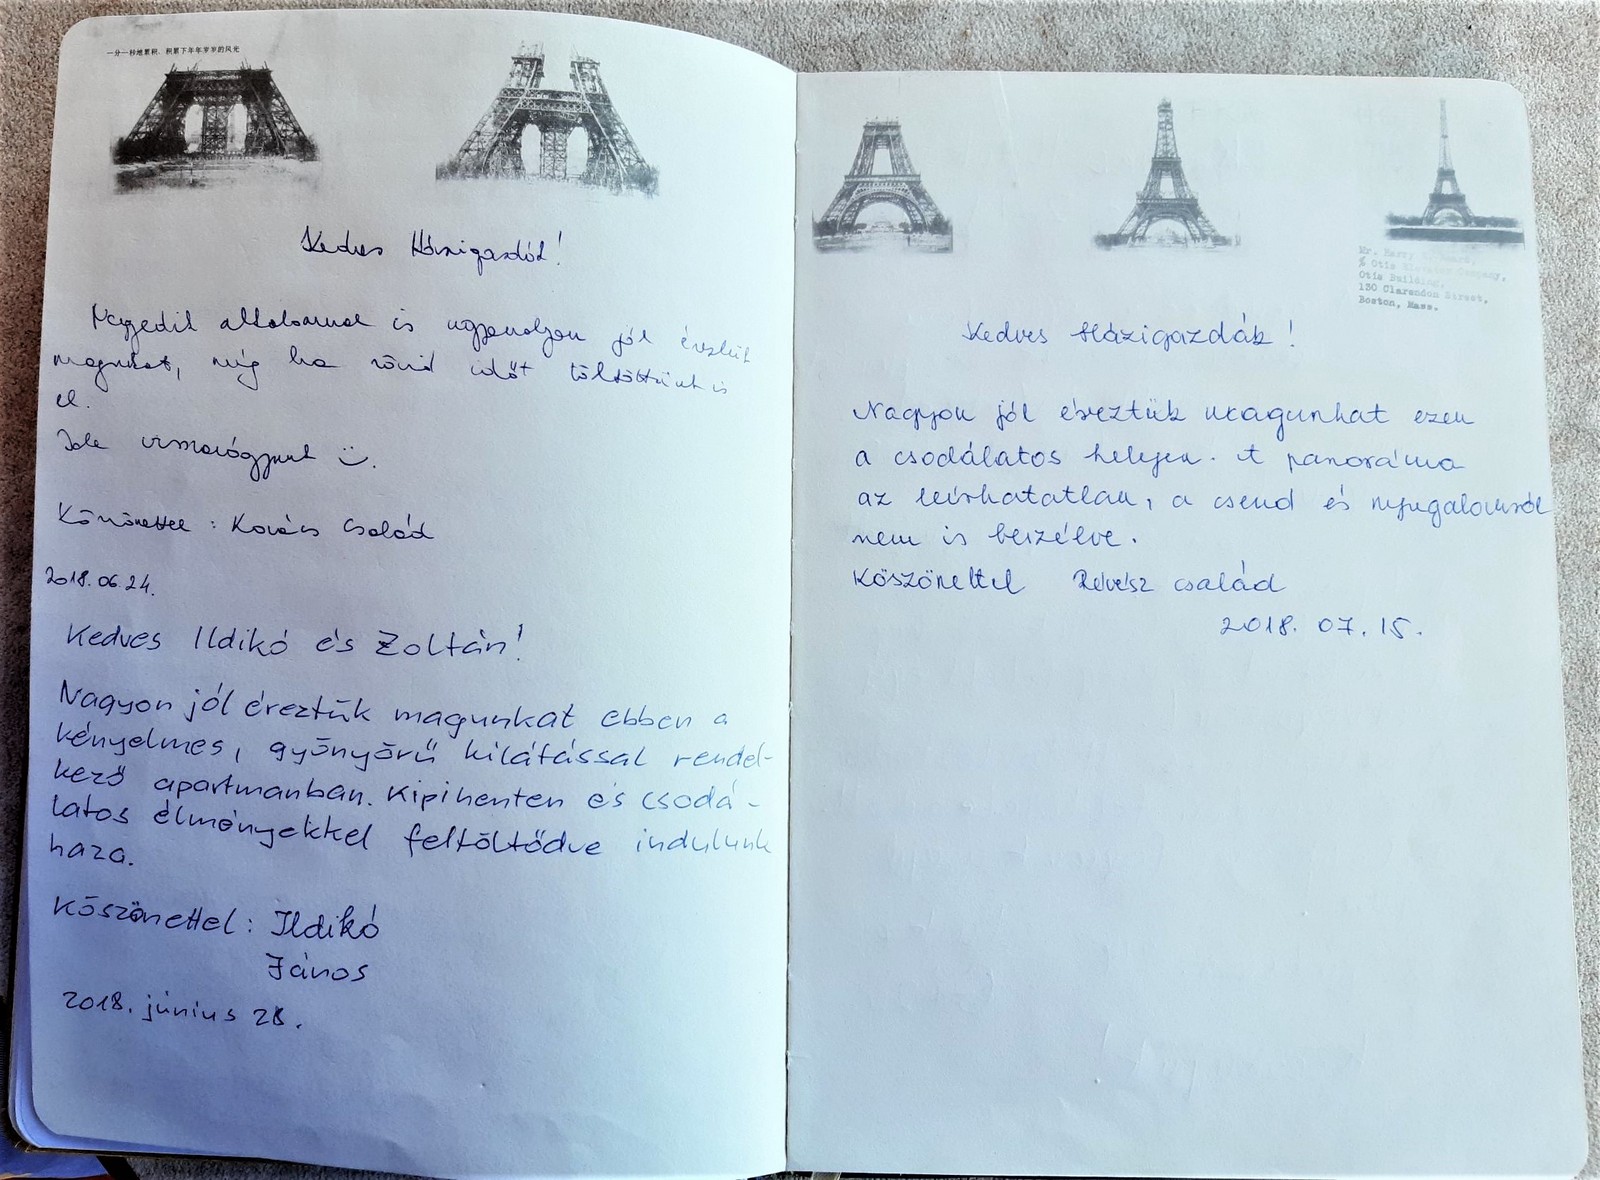 一分一秒地累积，积累下年年岁岁的风光
Kedves Házigazdák!
Negyedik alkalommal is ugyanolyan jól éreztük
magunkat, még ha rövid időt töltöttünk is
el.
Ide visszavágyunk :).
Köszönettel: Kovács Család
2018.06.24.
Kedves Ildikó és Zoltán!
Nagyon jól éreztük magunkat ebben a
kényelmes, gyönyörű kilátással rendel-
kező apartmanban. Kipihenten és csodá-
latos élményekkel feltöltődve indulunk
haza.
Köszönettel: Ildikó
János
2018. június 28.
Mr. Harry
% Otis Elevator Company,
Otis Building,
130 Clarendon Street,
Boston, Mass.
Kedves Házigazdák!
Nagyon jól éreztük magunkat ezen
a csodálatos helyen. A panoráma
az leírhatatlan, a csend és nyugalomról
nem is beszélve.
Köszönettel Révész család
2018. 07. 15.